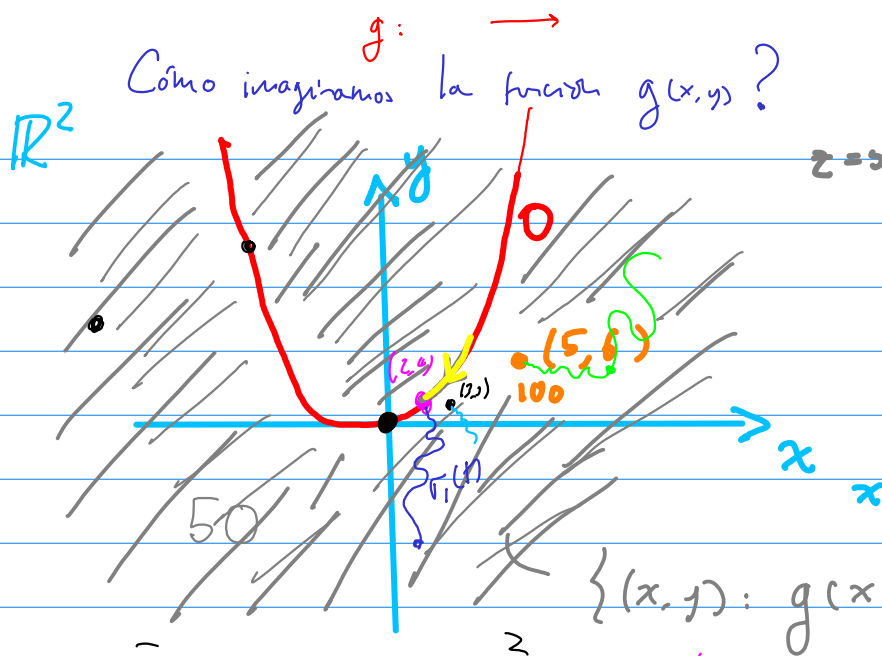 g: →
Cómo imaginamos la función g(x,y)?
ℝ²
y
z =
0
(5,6)
100
(2,4)
x
x
50
{(x,y): g(x